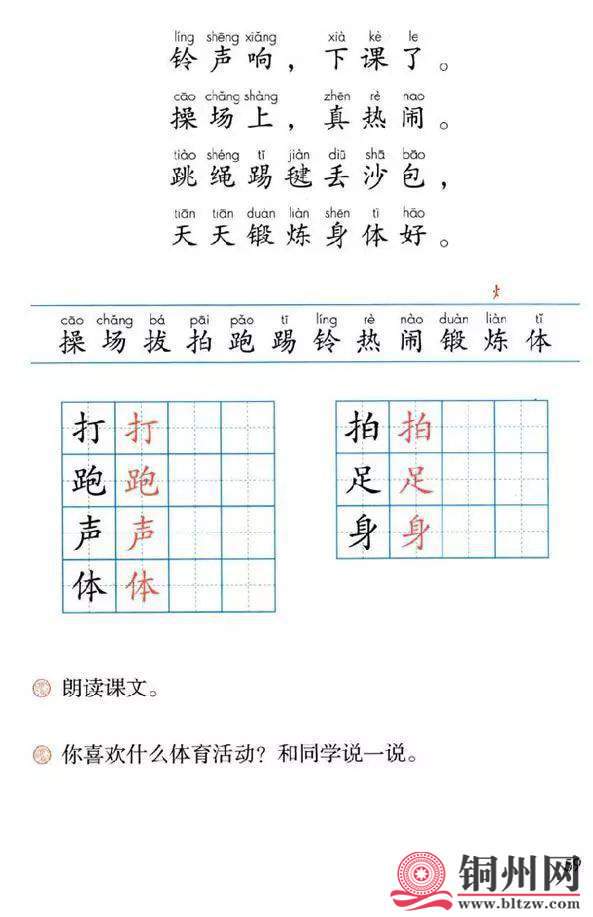 líng shēng xiǎng xià kè le
铃声响，下课了。
cāo chǎng shàng zhēn rè nao
操场上，真热闹。
tiào shéng tī jiàn diū shā bāo
跳绳踢毽丢沙包，
tiān tiān duàn liàn shēn tǐ hǎo
天天锻炼身体好。
火
cāo chǎng bá pāi pǎo tī líng rè nào duàn liàn tǐ
操 场 拔 拍 跑 踢 铃 热 闹 锻 炼 体
打 打 拍 拍
跑 跑 足 足
声 声 身 身
体 体
朗读课文。
你喜欢什么体育活动？和同学说一说。
铜州网
www.bltzw.com